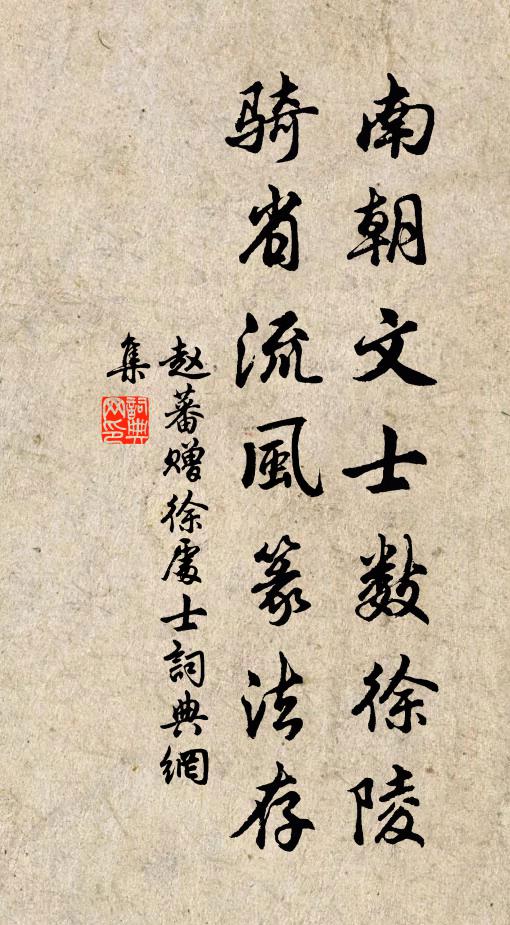 南朝文士数徐陵
骑省流風篆法存
赵蕃赠徐處士詞典網
集
詞典網印